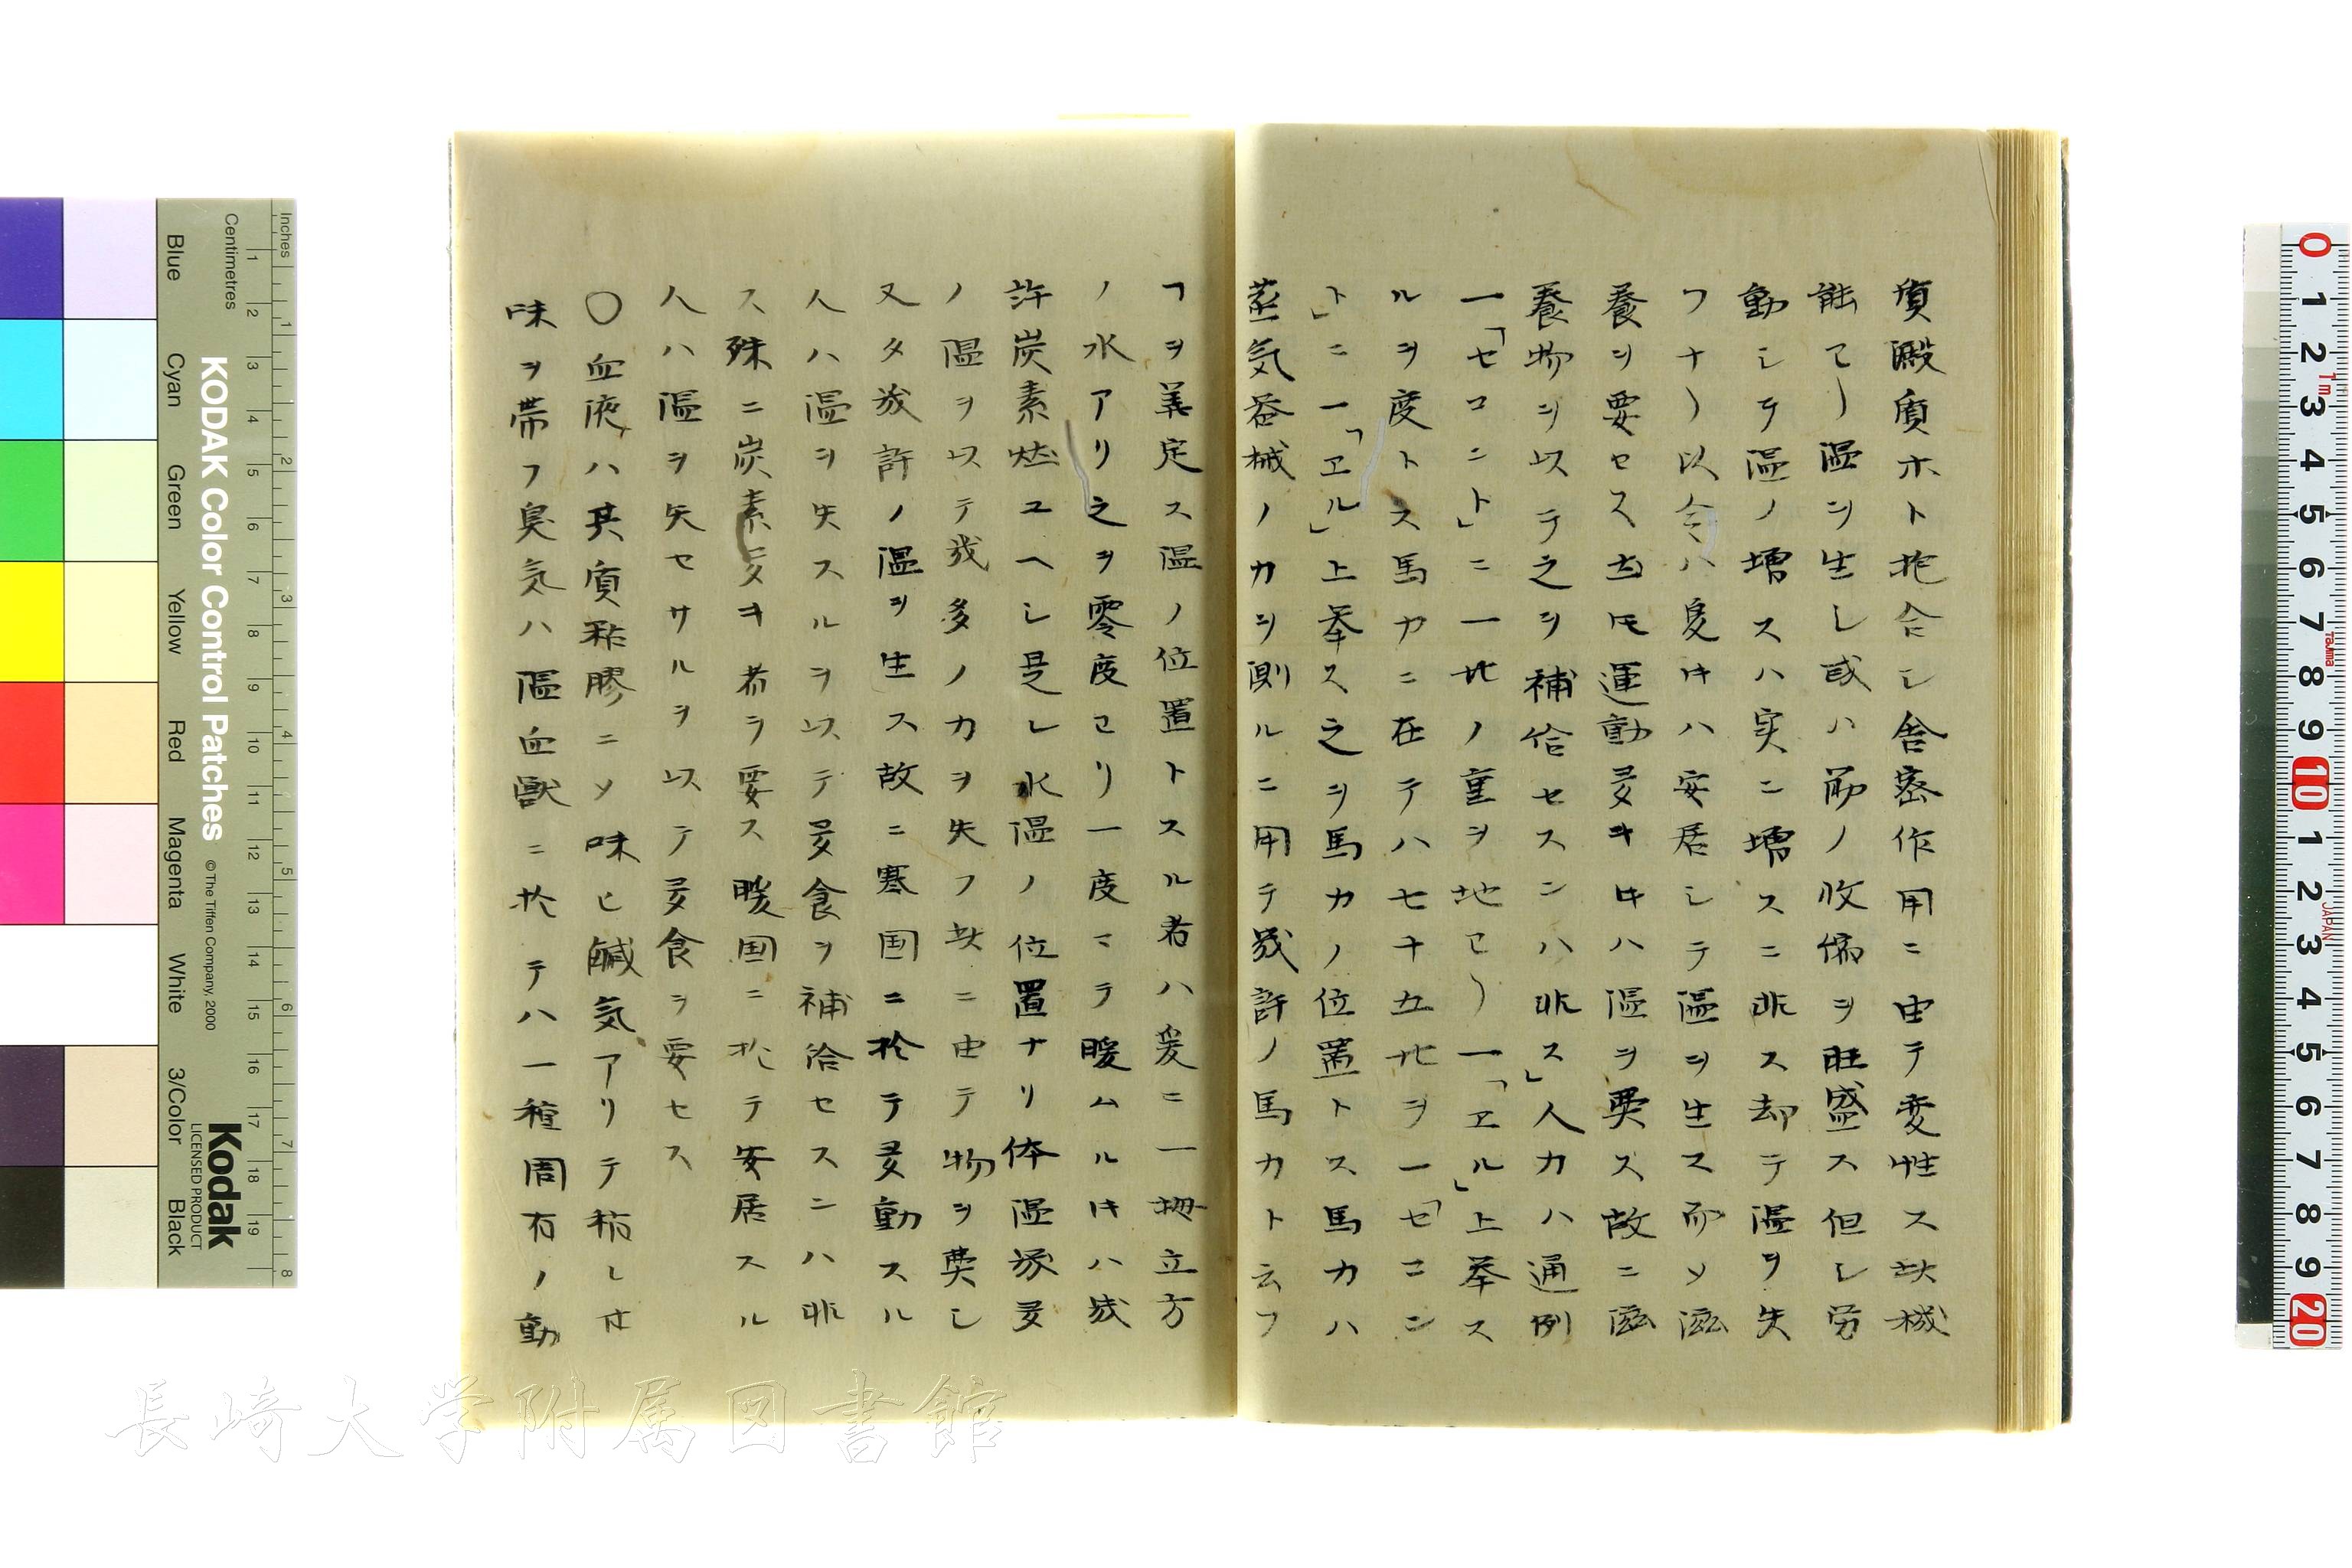 質澱質ホト抱合シ舎密作用ニ由テ変性ス故機
能ヨリ温ヲ生シ或ハ筋ノ收縮ヲ旺盛ス但シ労
動シテ温ノ増スハ実ニ増スニ非ス却テ温ヲ失
フナリ以合ハ夏時ハ安居シテ温ヲ生ス而メ滋
養ヲ要セス寒時運動多キ時ハ温ヲ要ス故ニ滋
養物ヲ以テ之ヲ補給セスンハ非ス」人力ハ通例
一「セコント」ニ一 ノ重ヲ地ヨリ一「ヱル」上挙ス
ルヲ度トス馬力ニ在テハ七十五 ヲ一「セコン
ト」ニ一「ヱル」上挙ス之ヲ馬力ノ位置トス馬力ハ
蒸気器械ノ力ヲ測ルニ用テ幾許ノ馬力ト云フ
ヿヲ義定ス温ノ位置トスル者ハ爰ニ一 立方
ノ水アリ之ヲ零度ヨリ一度マテ暖ムル時ハ幾
許炭素燃ユヘシ是レ水温ノ位置ナリ体温多
ノ温ヲ以テ幾多ノ力ヲ失フ故ニ由テ物ヲ費シ
又タ幾許ノ温ヲ生ス故ニ寒国ニ於テ多動スル
人ハ温ヲ失スルヲ以テ多食ヲ補給セスニハ非
ス殊ニ炭素多キ者ヲ要ス暖国ニ於テ安居スル
人ハ温ヲ失セサルヲ以テ多食ヲ要セス
〇血液ハ其質粘膠ニメ味ヒ鹹気アリテ稍シ甘
味ヲ帯フ臭気ハ温血獣ニ於テハ一種固有ノ動
長崎大学附属図書館
KODAK Color Control Patches
© The Tiffen Company, 2000
Kodak
LICENSED PRODUCT
Inches
Centimetres
Blue
Cyan
Green
Yellow
Red
Magenta
White
3/Color
Black